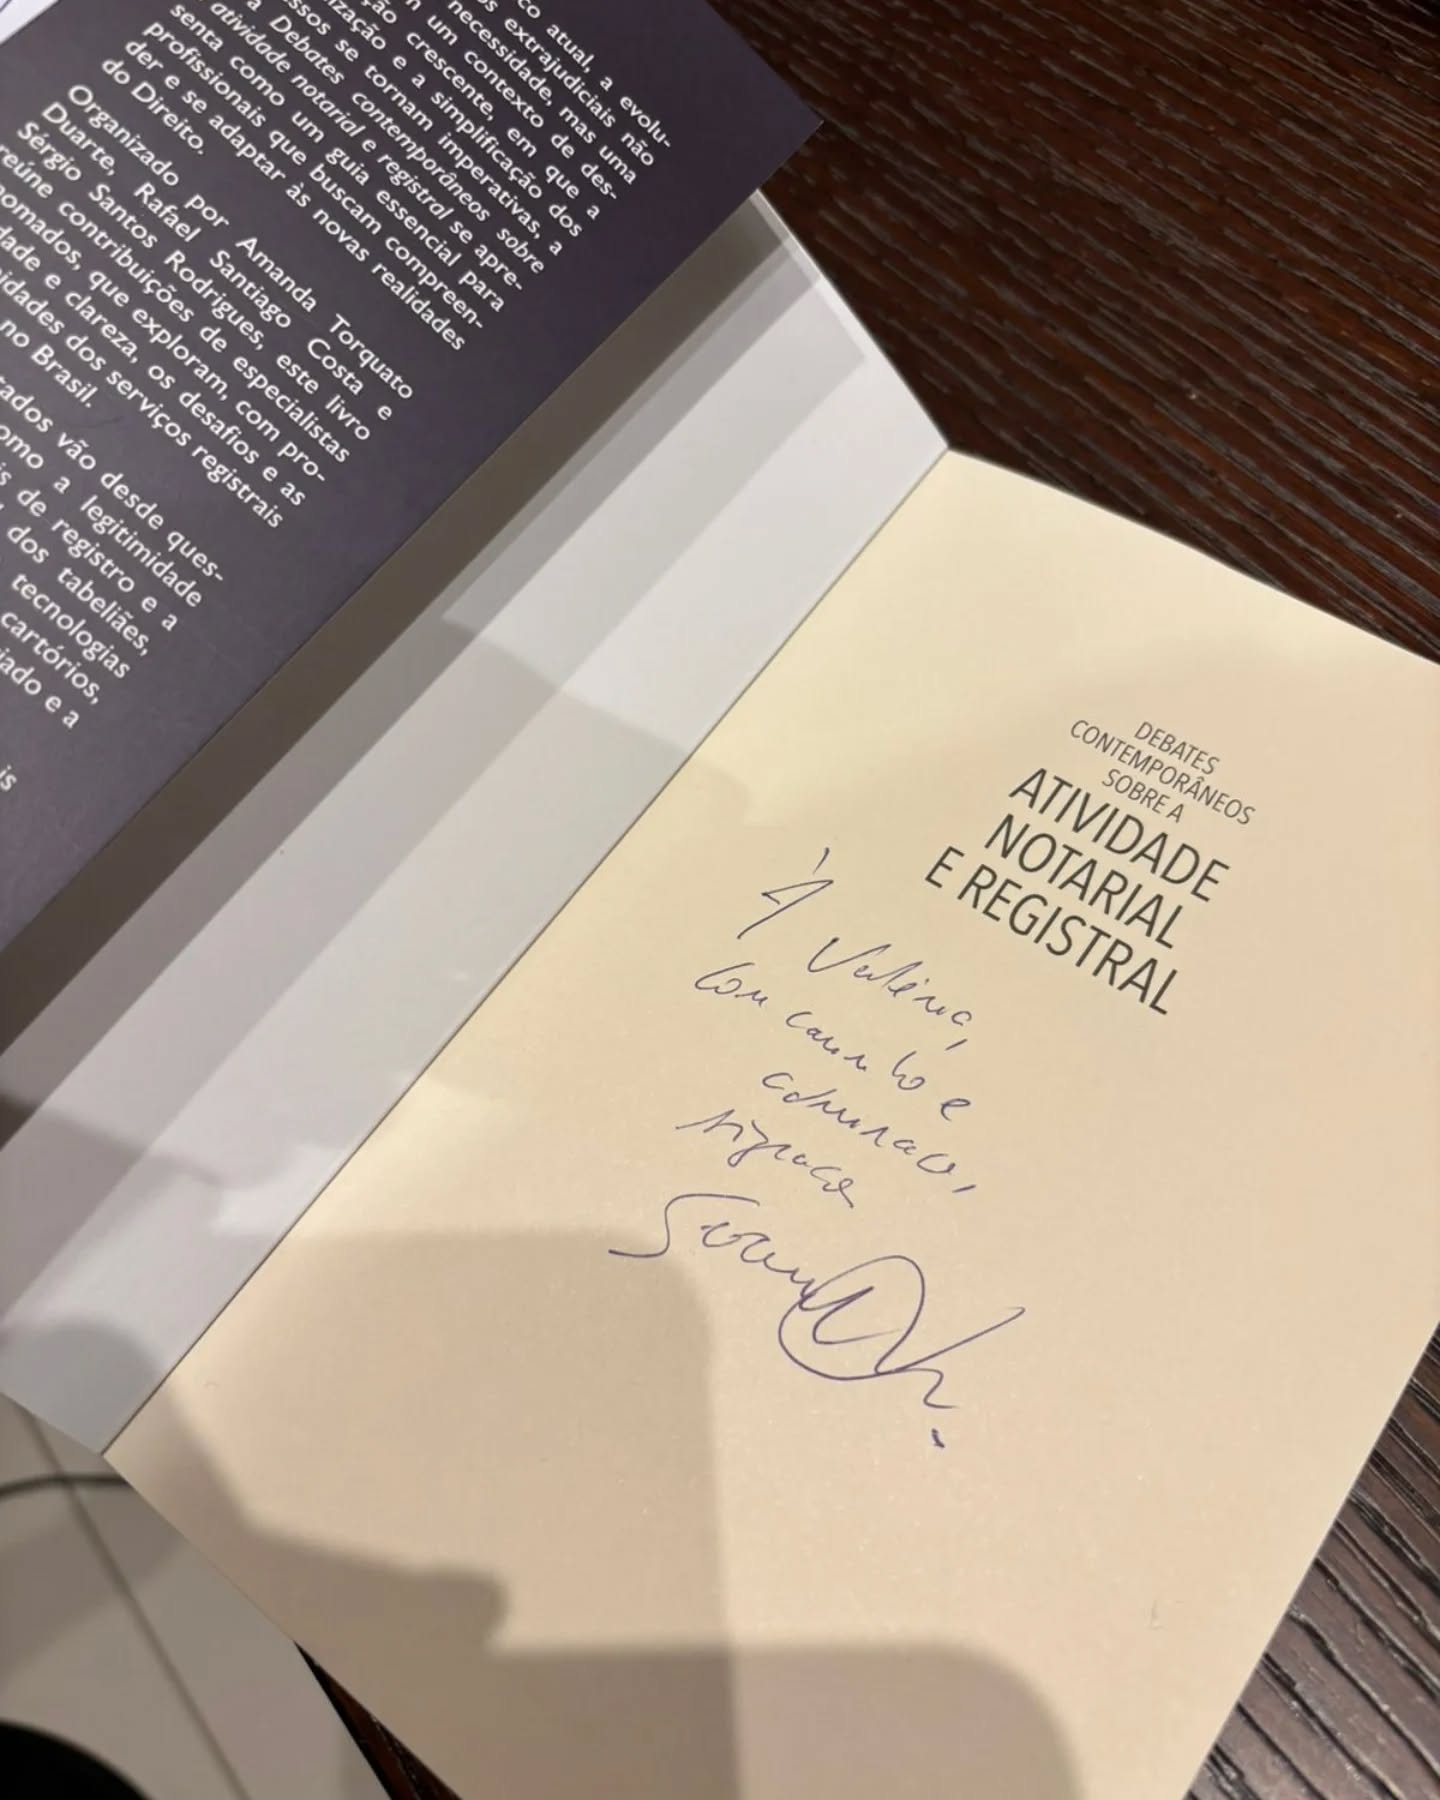 co atual, a evolu-
s extrajudiciais não
necessidade, mas uma
um contexto de des-
ão crescente, em que a
ização e a simplificação dos
ssos se tornam imperativas, a
a Debates contemporâneos sobre
atividade notarial e registral se apre-
senta como um guia essencial para
profissionais que buscam compreen-
der e se adaptar às novas realidades
do Direito.
Organizado por Amanda Torquato
Duarte, Rafael Santiago Costa e
Sérgio Santos Rodrigues, este livro
reúne contribuições de especialistas
nomados, que exploram, com pro-
dade e clareza, os desafios e as
idades dos serviços registrais
no Brasil.
tados vão desde ques-
omo a legitimidade
is de registro e a
dos tabeliães,
tecnologias
cartórios,
iado e a
is
DEBATES
CONTEMPORÂNEOS
SOBRE A
ATIVIDADE
NOTARIAL
E REGISTRAL
À Valéria,
Com carinho e